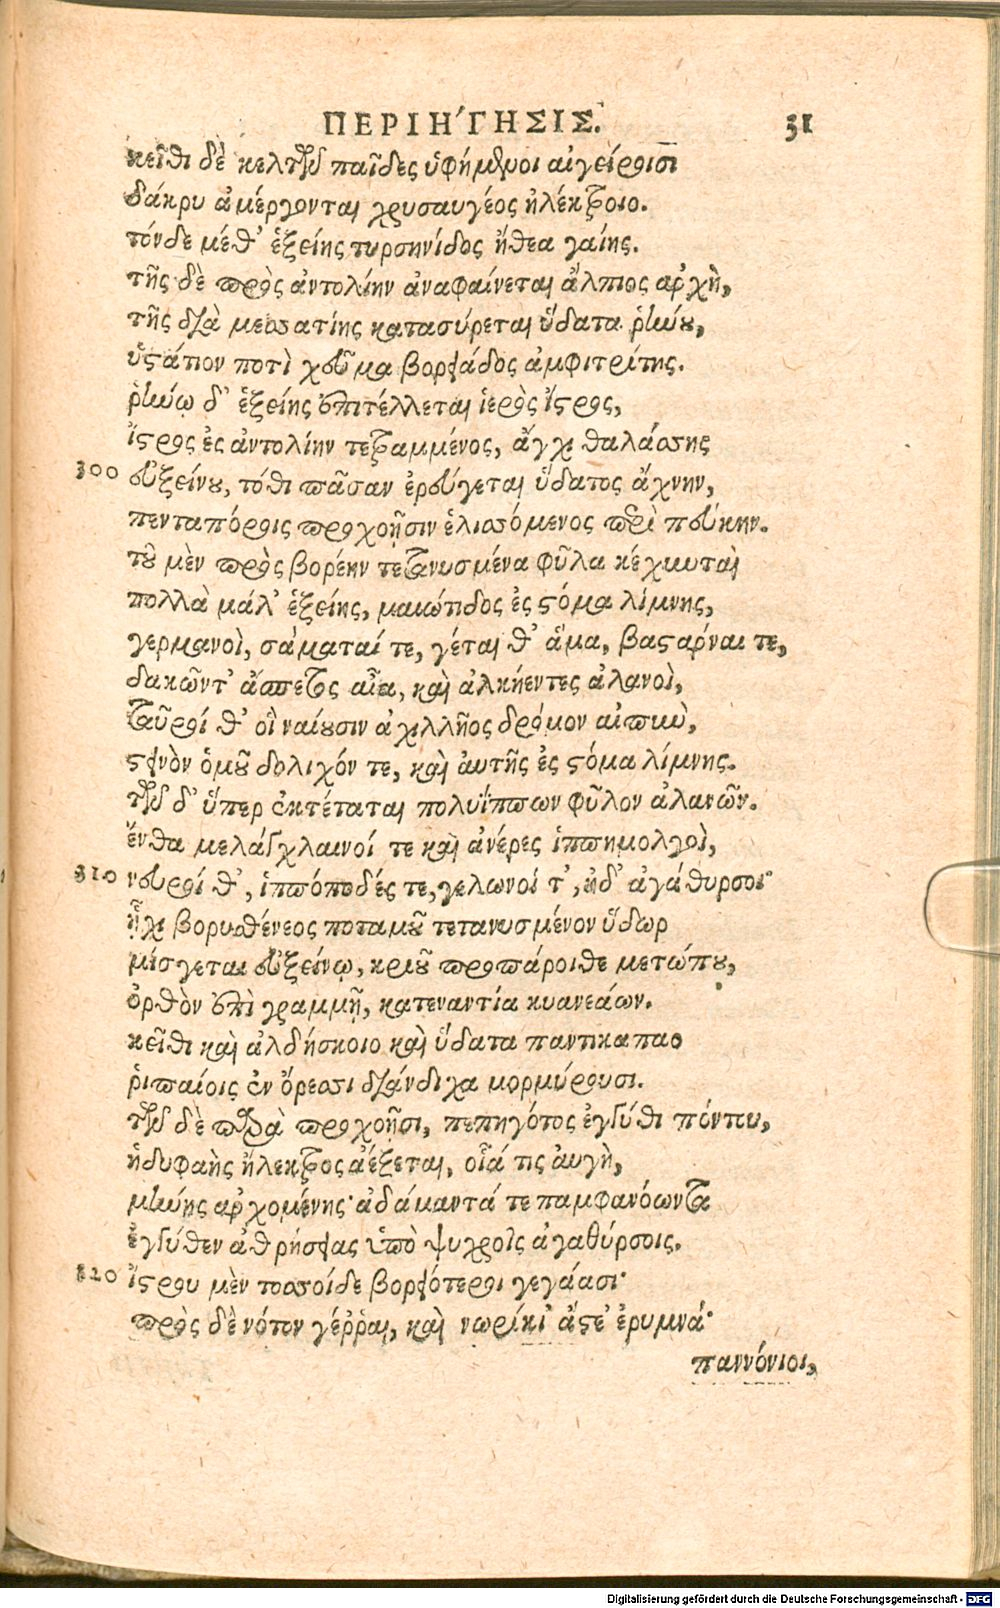 ΠΕΡΙΗΓΗΣΙΣ. 31
κεῖθι δὲ κελτῶν παῖδες ὑφήμενοι αἰγείροισι
δάκρυ ἀμέργονται χρυσαυγέος ἠλέκτροιο.
τόνδε μέθ' ἑξείης τυρσηνίδος ἤθεα γαίης.
τῆς δὲ πρὸς ἀντολίην ἀναφαίνεται ἄλπιος ἀρχὴ,
τῆς διὰ μεσσατίης κατασύρεται ὕδατα ῥήνου,
ὑστάτιον ποτὶ χεῦμα βορειάδος ἀμφιτρίτης.
ῥήνῳ δ' ἑξείης ἐπιτέλλεται ἱερὸς ἴστρος,
ἴστρος ἐς ἀντολίην τετραμμένος, ἄγχι θαλάσσης
300 εὐξείνου, τόθι πᾶσαν ἐρεύγεται ὕδατος ἄχνην,
πενταπόροις προχοῇσιν ἑλισσόμενος περὶ πεύκην.
τοῦ μὲν πρὸς βορέην τετανυσμένα φῦλα κέχυνται
πολλὰ μάλ' ἑξείης, μαιώτιδος ἐς στόμα λίμνης,
γερμανοὶ, σάματαί τε, γέται θ' ἅμα, βαστάρναι τε,
δακῶντ' ἄσπετος αἶα, καὶ ἀλκήεντες ἀλανοὶ,
ταῦροί θ' οἳ ναίουσιν ἀχιλλῆος δρόμον αἰπὺν,
στεινὸν ὁμοῦ δολιχόν τε, καὶ αὐτῆς ἐς στόμα λίμνης.
τῶν δ' ὕπερ ἐκτέταται πολυΐππων φῦλον ἀλανῶν.
ἔνθα μελάγχλαινοί τε καὶ ἀνέρες ἱππημολγοὶ,
310 νευροί θ', ἱππόποδές τε, γελωνοί τ', ἠδ' ἀγάθυρσοι·
ἧχι βορυσθένεος ποταμοῦ τετανυσμένον ὕδωρ
μίσγεται εὐξείνῳ, κριοῦ προπάροιθε μετώπου,
ὀρθὸν ἐπὶ γραμμῇ, κατεναντία κυανεάων.
κεῖθι καὶ ἀλδήσκοιο καὶ ὕδατα παντικαπαο
ῥιπαίοις ἐν ὄρεσσι διάνδιχα μορμύρουσι.
τῶν δὲ παρὰ προχοῇσι, πεπηγότος ἐγγύθι πόντου,
ἡδυφαὴς ἤλεκτρος ἀέξεται, οἷά τις αὐγὴ,
μήνης ἀρχομένης· ἀδάμαντά τε παμφανόωντα
ἐγγύθεν ἀθρήσειας ὑπὸ ψυχροῖς ἀγαθύρσοις.
320 ἴστρου μὲν τοσσοίδε βορειότεροι γεγάασι·
πρὸς δὲ νότον γέῤῥαι, καὶ νωρίκι' ἄστε' ἐρυμνά·
παννόνιοι,
Digitalisierung gefördert durch die Deutsche Forschungsgemeinschaft - DFG